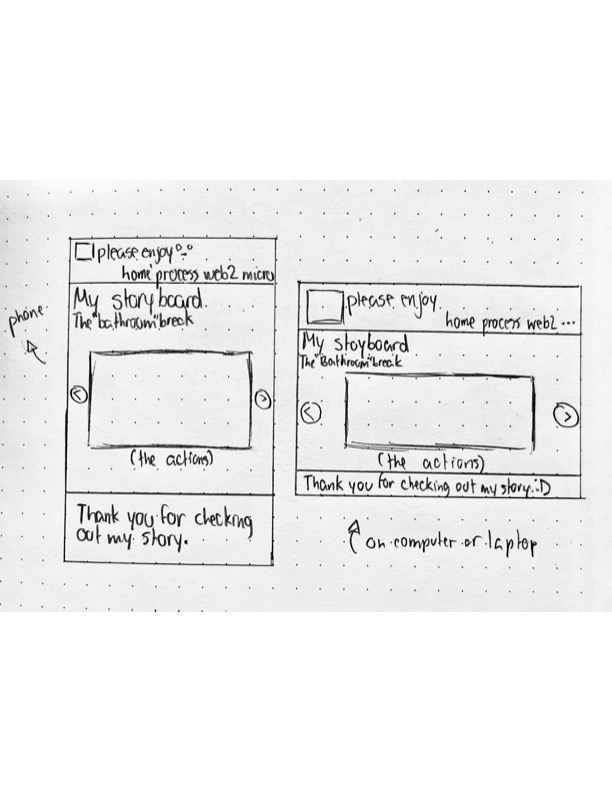 please enjoy
home process web2 micro
My storyboard.
The "bathroom" break
<
>
(the actions)
Thank you for checking
out my story.
phone
please enjoy.
home process web2 ...
My stoyboard
The "Bathroom" break
<
>
(the actions)
Thank you for checking out my story. :D
on computer or laptop